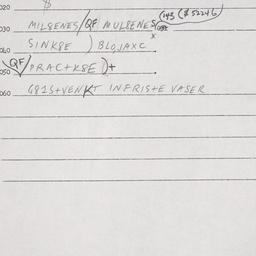 020
030 MILSENES/QF MULSENES (145 ($52246)
040 SINKSE ) BLOJAXC
050 QF/PRAC+KSE)+
060 G81S+VENKT INFRIS+E VASER